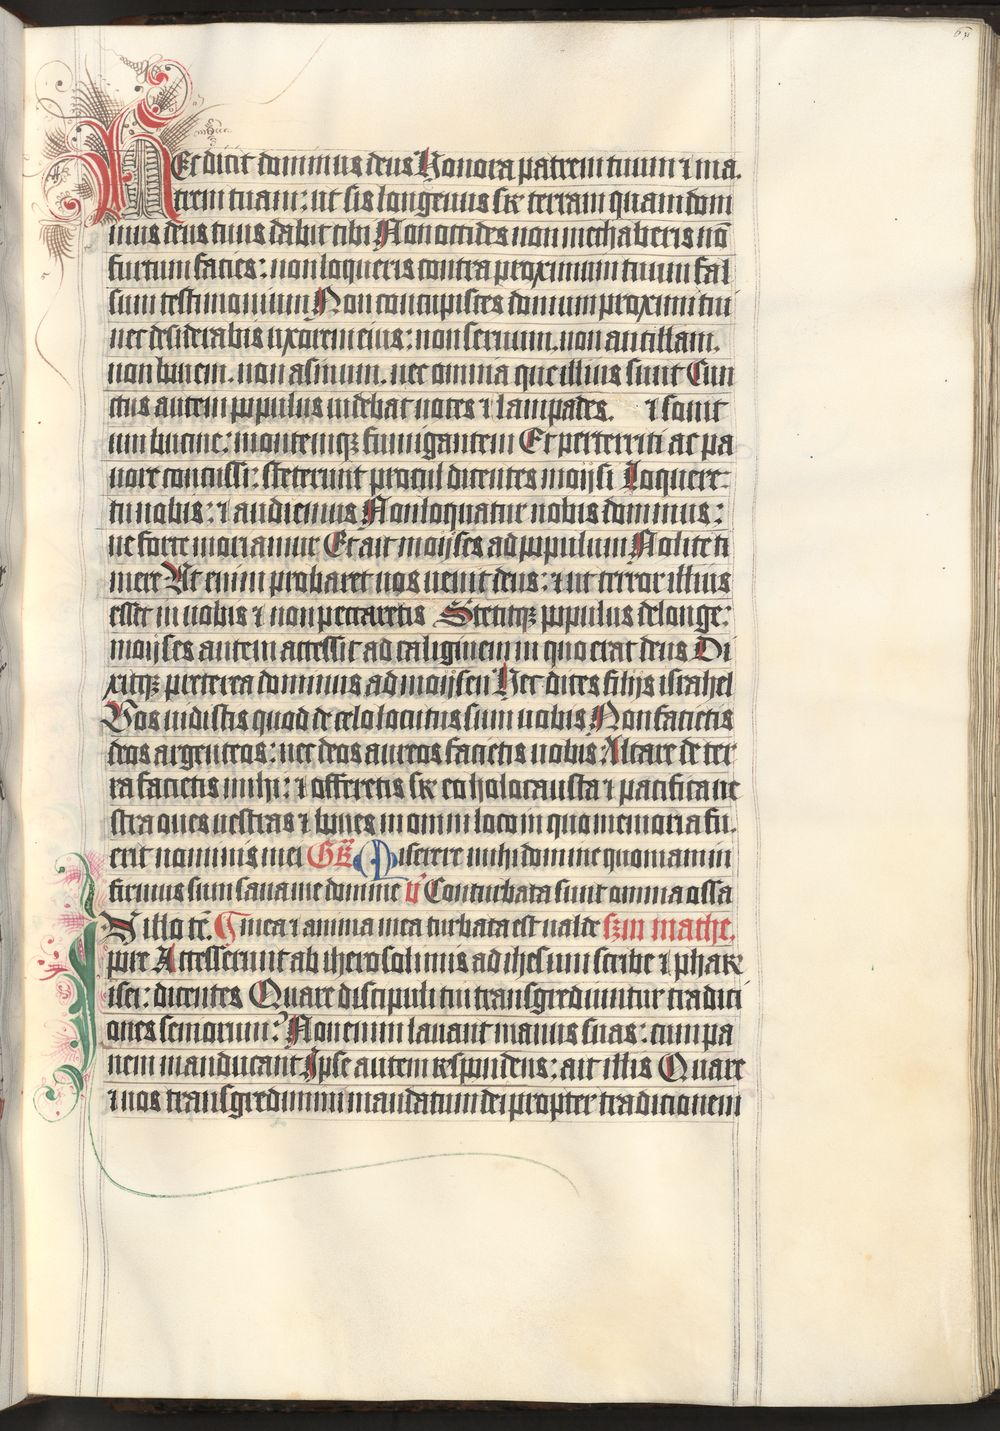 Hec dicit dominus deus Honora patrem tuum ⁊ ma.
trem tuam: ut sis longeuus sr̄ terram quam dom
inus deus tuus dabit tibi Non occides non mechaberis nō
furtum facies: non loqueris contra proximum tuum fal
sum testimonium Non concupisces domum proximi tui
nec desiderabis uxorem eius: non seruum. non ancillam.
non bouem. non asinum. nec omnia que illius sunt Cun
ctus autem populus uidebat uoces ⁊ lampades. ⁊ sonit
um bucine: montemqꝫ fumigantem Et perterriti ac pa
uore concussi: steterunt procul dicentes moijsi Loquere:
tu nobis: ⁊ audiemus Non loquatur nobis dominus:
ne forte moriamur Et ait moijses ad populum Nolite ti
mere Ut enim probaret uos uenit deus: ⁊ ut terror illius
esset in uobis ⁊ non peccaretis Stetitqꝫ populus de longe:
moijses autem accessit ad caliginem in quo erat deus Di
xitqꝫ preterea dominus ad moijsen Hec dices filijs israhel
Vos uidistis quod de celo locutus sum uobis Non facietis
deos argenteos: nec deos aureos facietis uobis: Altare de ter
ra facietis mihi: ⁊ offeretis sr̄ eo holocausta ⁊ pacifica ue
stra oues uestras ⁊ boues in omni loco in quo memoria fu.
erit nominis mei GR̄ Miserere mihi domine quoniam in
firmus sum sana me domine v̄ Conturbata sunt omnia ossa
N illo tē. mea ⁊ anima mea turbata est ualde sz̄m mathe.
pore Accesserunt ab iherosolimis ad ihesum scribe ⁊ phar
isei: dicentes Quare discipuli tui transgrediuntur tradici
ones seniorum? Non enim lauant manus suas: cum pa
nem manducant Ipse autem respondens: ait illis Quare
⁊ uos transgredimini mandatum dei propter tradicionem